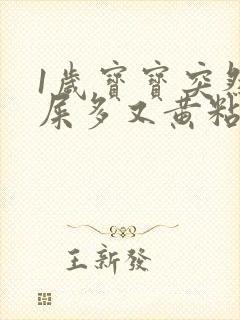 1歲寶寶突然
屎多又黃粘
王新發